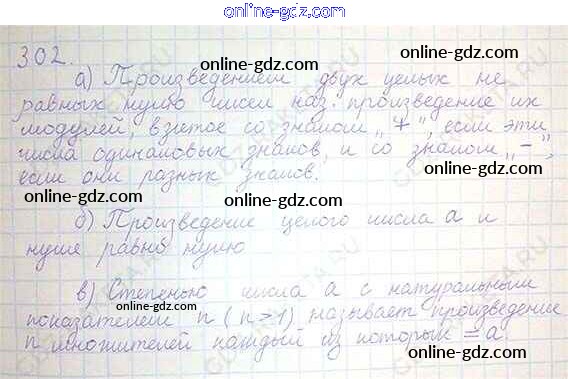 online-gdz.com
302.
а) Произведением двух целых не
равных нулю чисел наз. произведение их
модулей, взятое со знаком „+", если эти
числа одинаковых знаков, и со знаком „−",
если они разных знаков.
б) Произведение целого числа a и
нуля равно нулю
в) Степенью числа a с натуральным
показателем n (n>1) называет произведение
n множителей каждый из которых = a.
online-gdz.com
online-gdz.com
online-gdz.com
online-gdz.com
online-gdz.com
online-gdz.com
online-gdz.com
online-gdz.com
online-gdz.com
online-gdz.com
online-gdz.com